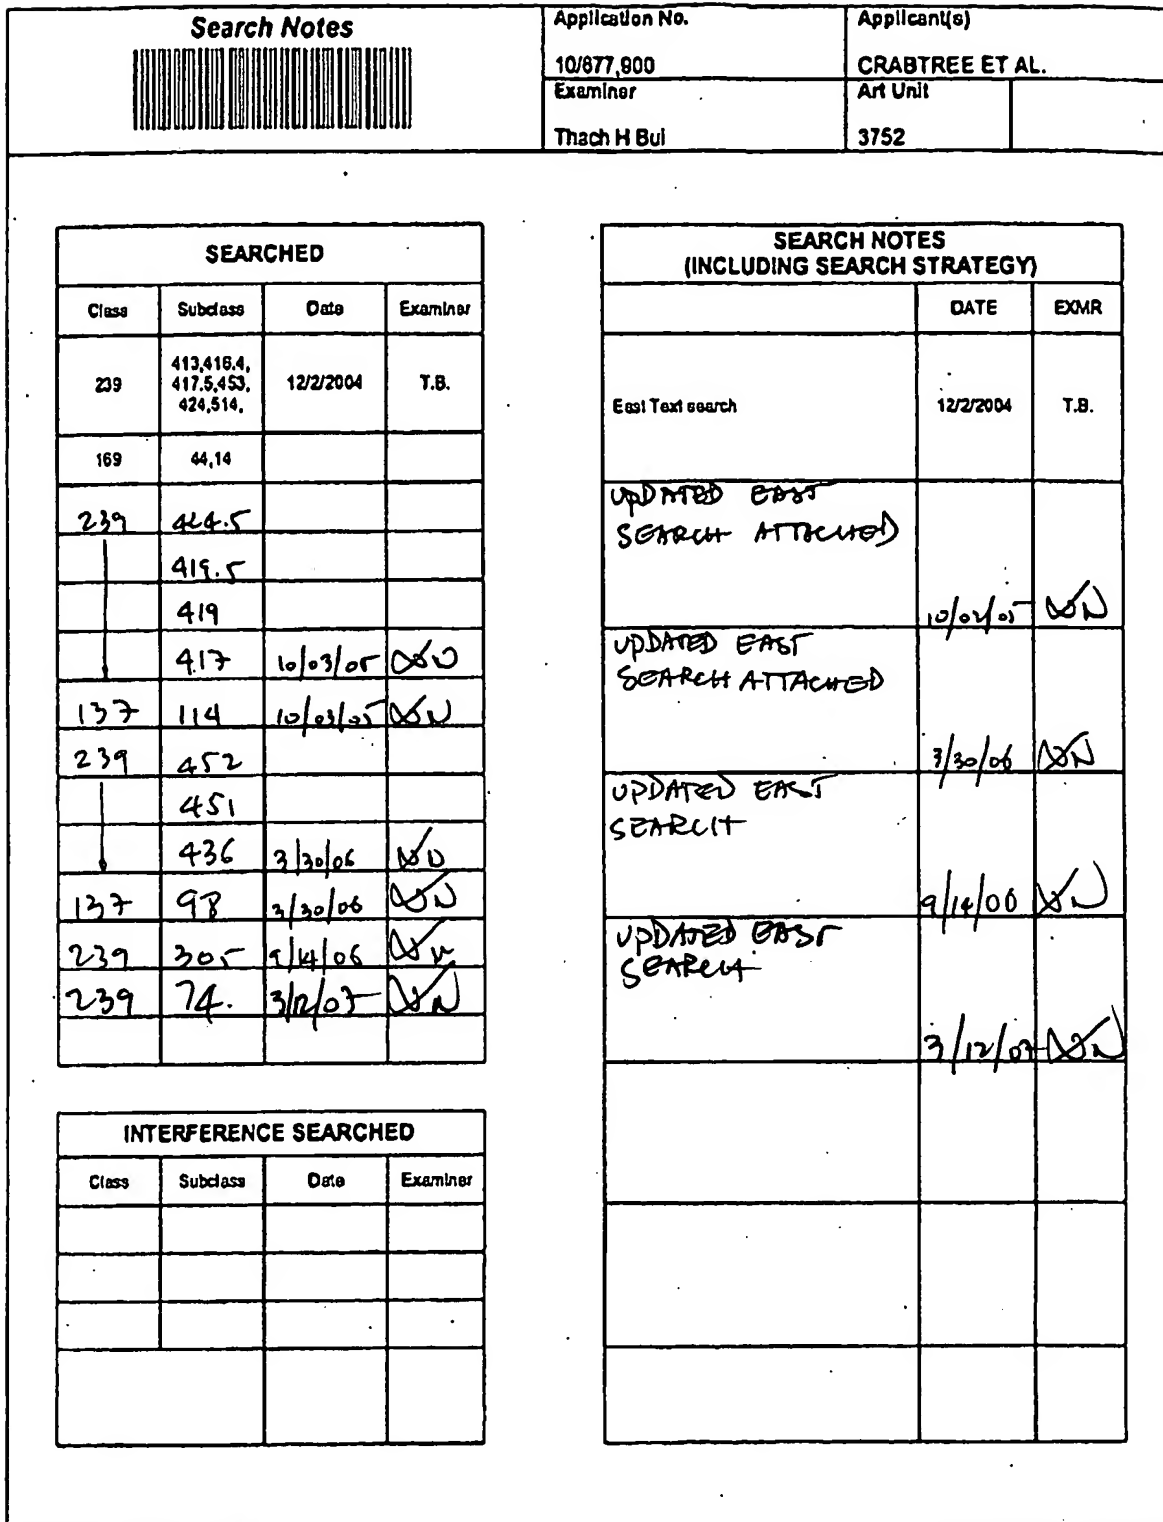 Search Notes
Application No.
10/677,800
Applicant(s)
CRABTREE ET AL.
Examiner
Thach H Bui
Art Unit
3752
SEARCHED
Class Subclass Date Examiner
239 413,416.4, 417.5,453, 424,514, 12/2/2004 T.B.
169 44,14
239 424.5
419.5
419
417 10/03/05
137 114 10/03/05
239 452
451
436 3/30/06
137 98 3/30/06
239 305 9/14/06
239 74. 3/12/07
INTERFERENCE SEARCHED
Class Subclass Date Examiner
SEARCH NOTES
(INCLUDING SEARCH STRATEGY)
DATE EXMR
East Text search 12/2/2004 T.B.
UPDATED EAST
SEARCH ATTACHED
10/02/05
UPDATED EAST
SEARCH ATTACHED
3/30/06
UPDATED EAST
SEARCH
9/14/06
UPDATED EAST
SEARCH
3/12/07